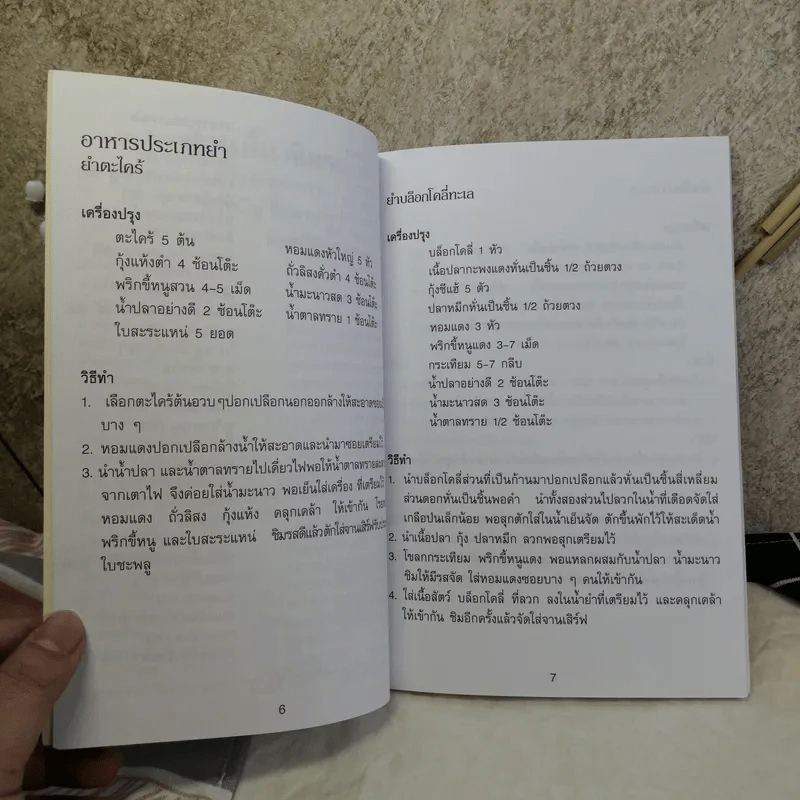 อาหารประเภทยำ
ยำตะไคร้
เครื่องปรุง
ตะไคร้ 5 ต้น
กุ้งแห้งตำ 4 ช้อนโต๊ะ
พริกขี้หนูสวน 4-5 เม็ด
น้ำปลาอย่างดี 2 ช้อนโต๊ะ
ใบสะระแหน่ 5 ยอด
หอมแดงหัวใหญ่ 5 หัว
ถั่วลิสงคั่วตำ 4 ช้อนโต๊ะ
น้ำมะนาวสด 3 ช้อนโต๊ะ
น้ำตาลทราย 1 ช้อนโต๊ะ
วิธีทำ
1. เลือกตะไคร้ต้นอวบๆปอกเปลือกนอกออกล้างให้สะอาดซอย
บาง ๆ
2. หอมแดงปอกเปลือกล้างน้ำให้สะอาดและนำมาซอยเตรียมไว้
3. นำน้ำปลา และน้ำตาลทรายไปเคี่ยวไฟพอให้น้ำตาลทราย
จากเตาไฟ จึงค่อยใส่น้ำมะนาว พอเย็นใส่เครื่อง ที่เตรียมไว้
หอมแดง ถั่วลิสง กุ้งแห้ง คลุกเคล้า ให้เข้ากัน
พริกขี้หนู และใบสะระแหน่ ชิมรสดีแล้วตักใส่จานเสิร์ฟ
ใบชะพลู
6
ยำบล็อกโคลี่ทะเล
เครื่องปรุง
บล็อกโคลี่ 1 หัว
เนื้อปลากะพงแดงหั่นเป็นชิ้น 1/2 ถ้วยตวง
กุ้งชีแฮ้ 5 ตัว
ปลาหมึกหั่นเป็นชิ้น 1/2 ถ้วยตวง
หอมแดง 3 หัว
พริกขี้หนูแดง 3-7 เม็ด
กระเทียม 5-7 กลีบ
น้ำปลาอย่างดี 2 ช้อนโต๊ะ
น้ำมะนาวสด 3 ช้อนโต๊ะ
น้ำตาลทราย 1/2 ช้อนโต๊ะ
วิธีทำ
1. นำบล็อกโคลี่ส่วนที่เป็นก้านมาปอกเปลือกแล้วหั่นเป็นชิ้นสี่เหลี่ยม
ส่วนดอกหั่นเป็นชิ้นพอคำ นำทั้งสองส่วนไปลวกในน้ำที่เดือดจัดใส่
เกลือปนเล็กน้อย พอสุกตักใส่ในน้ำเย็นจัด ตักขึ้นพักไว้ให้สะเด็ดน้ำ
2. นำเนื้อปลา กุ้ง ปลาหมึก ลวกพอสุกเตรียมไว้
3. โขลกกระเทียม พริกขี้หนูแดง พอแหลกผสมกับน้ำปลา น้ำมะนาว
ชิมให้มีรสจัด ใส่หอมแดงซอยบาง ๆ คนให้เข้ากัน
4. ใส่เนื้อสัตว์ บล็อกโคลี่ ที่ลวก ลงในน้ำยำที่เตรียมไว้ และคลุกเคล้า
ให้เข้ากัน ชิมอีกครั้งแล้วจัดใส่จานเสิร์ฟ
7